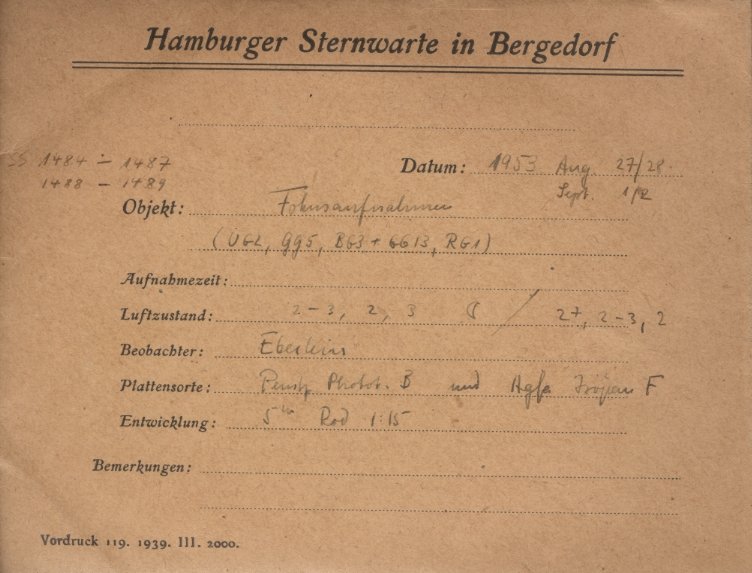 Hamburger Sternwarte in Bergedorf
SS 1484 – 1487 Datum: 1953 Aug. 27/28
1488 – 1489 Sept. 1/2
Objekt: Fokusaufnahmen
(UG2, GG5, BG3 + GG13, RG1)
Aufnahmezeit:
Luftzustand: 2–3, 2, 3 / 2–3, 2
Beobachter:
Plattensorte: Photot. B und Agfa F
Entwicklung: 5 Rod 1:15
Bemerkungen:
Vordruck 119. 1939. III. 2000.